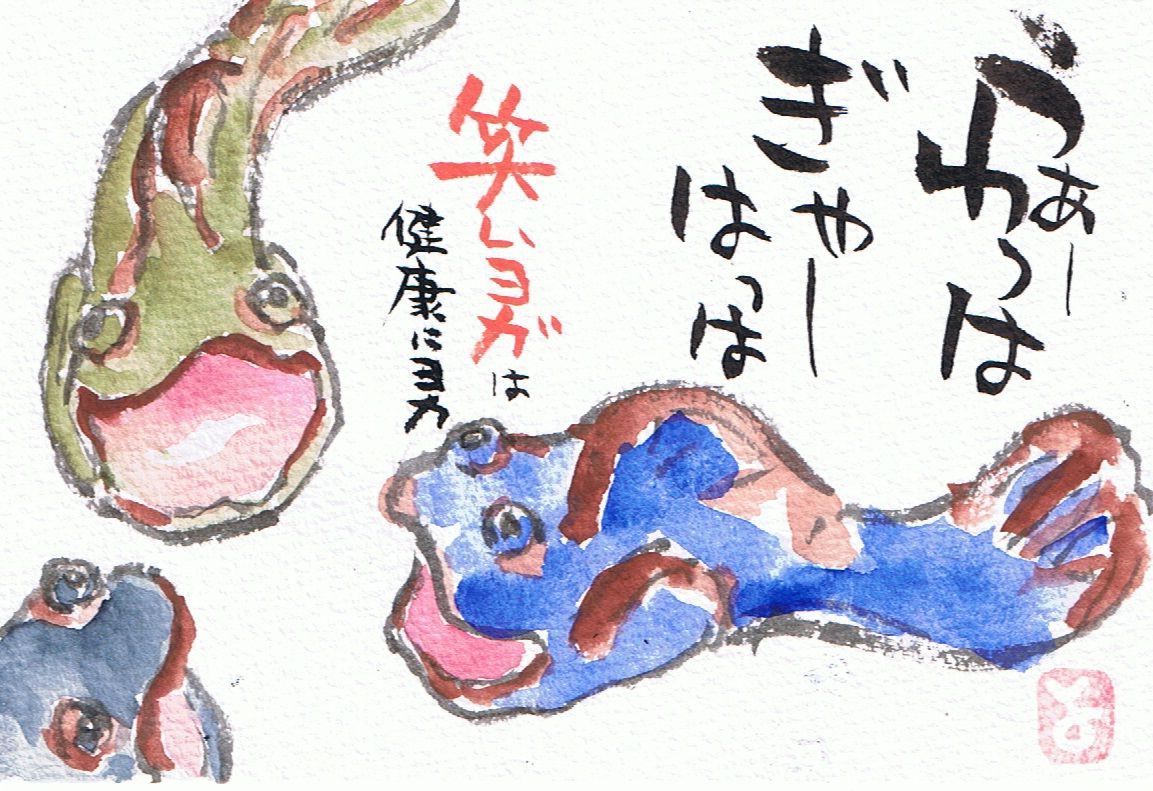 うぁー
わっは
ぎゃー
はっは
笑いヨガは
健康にヨカ